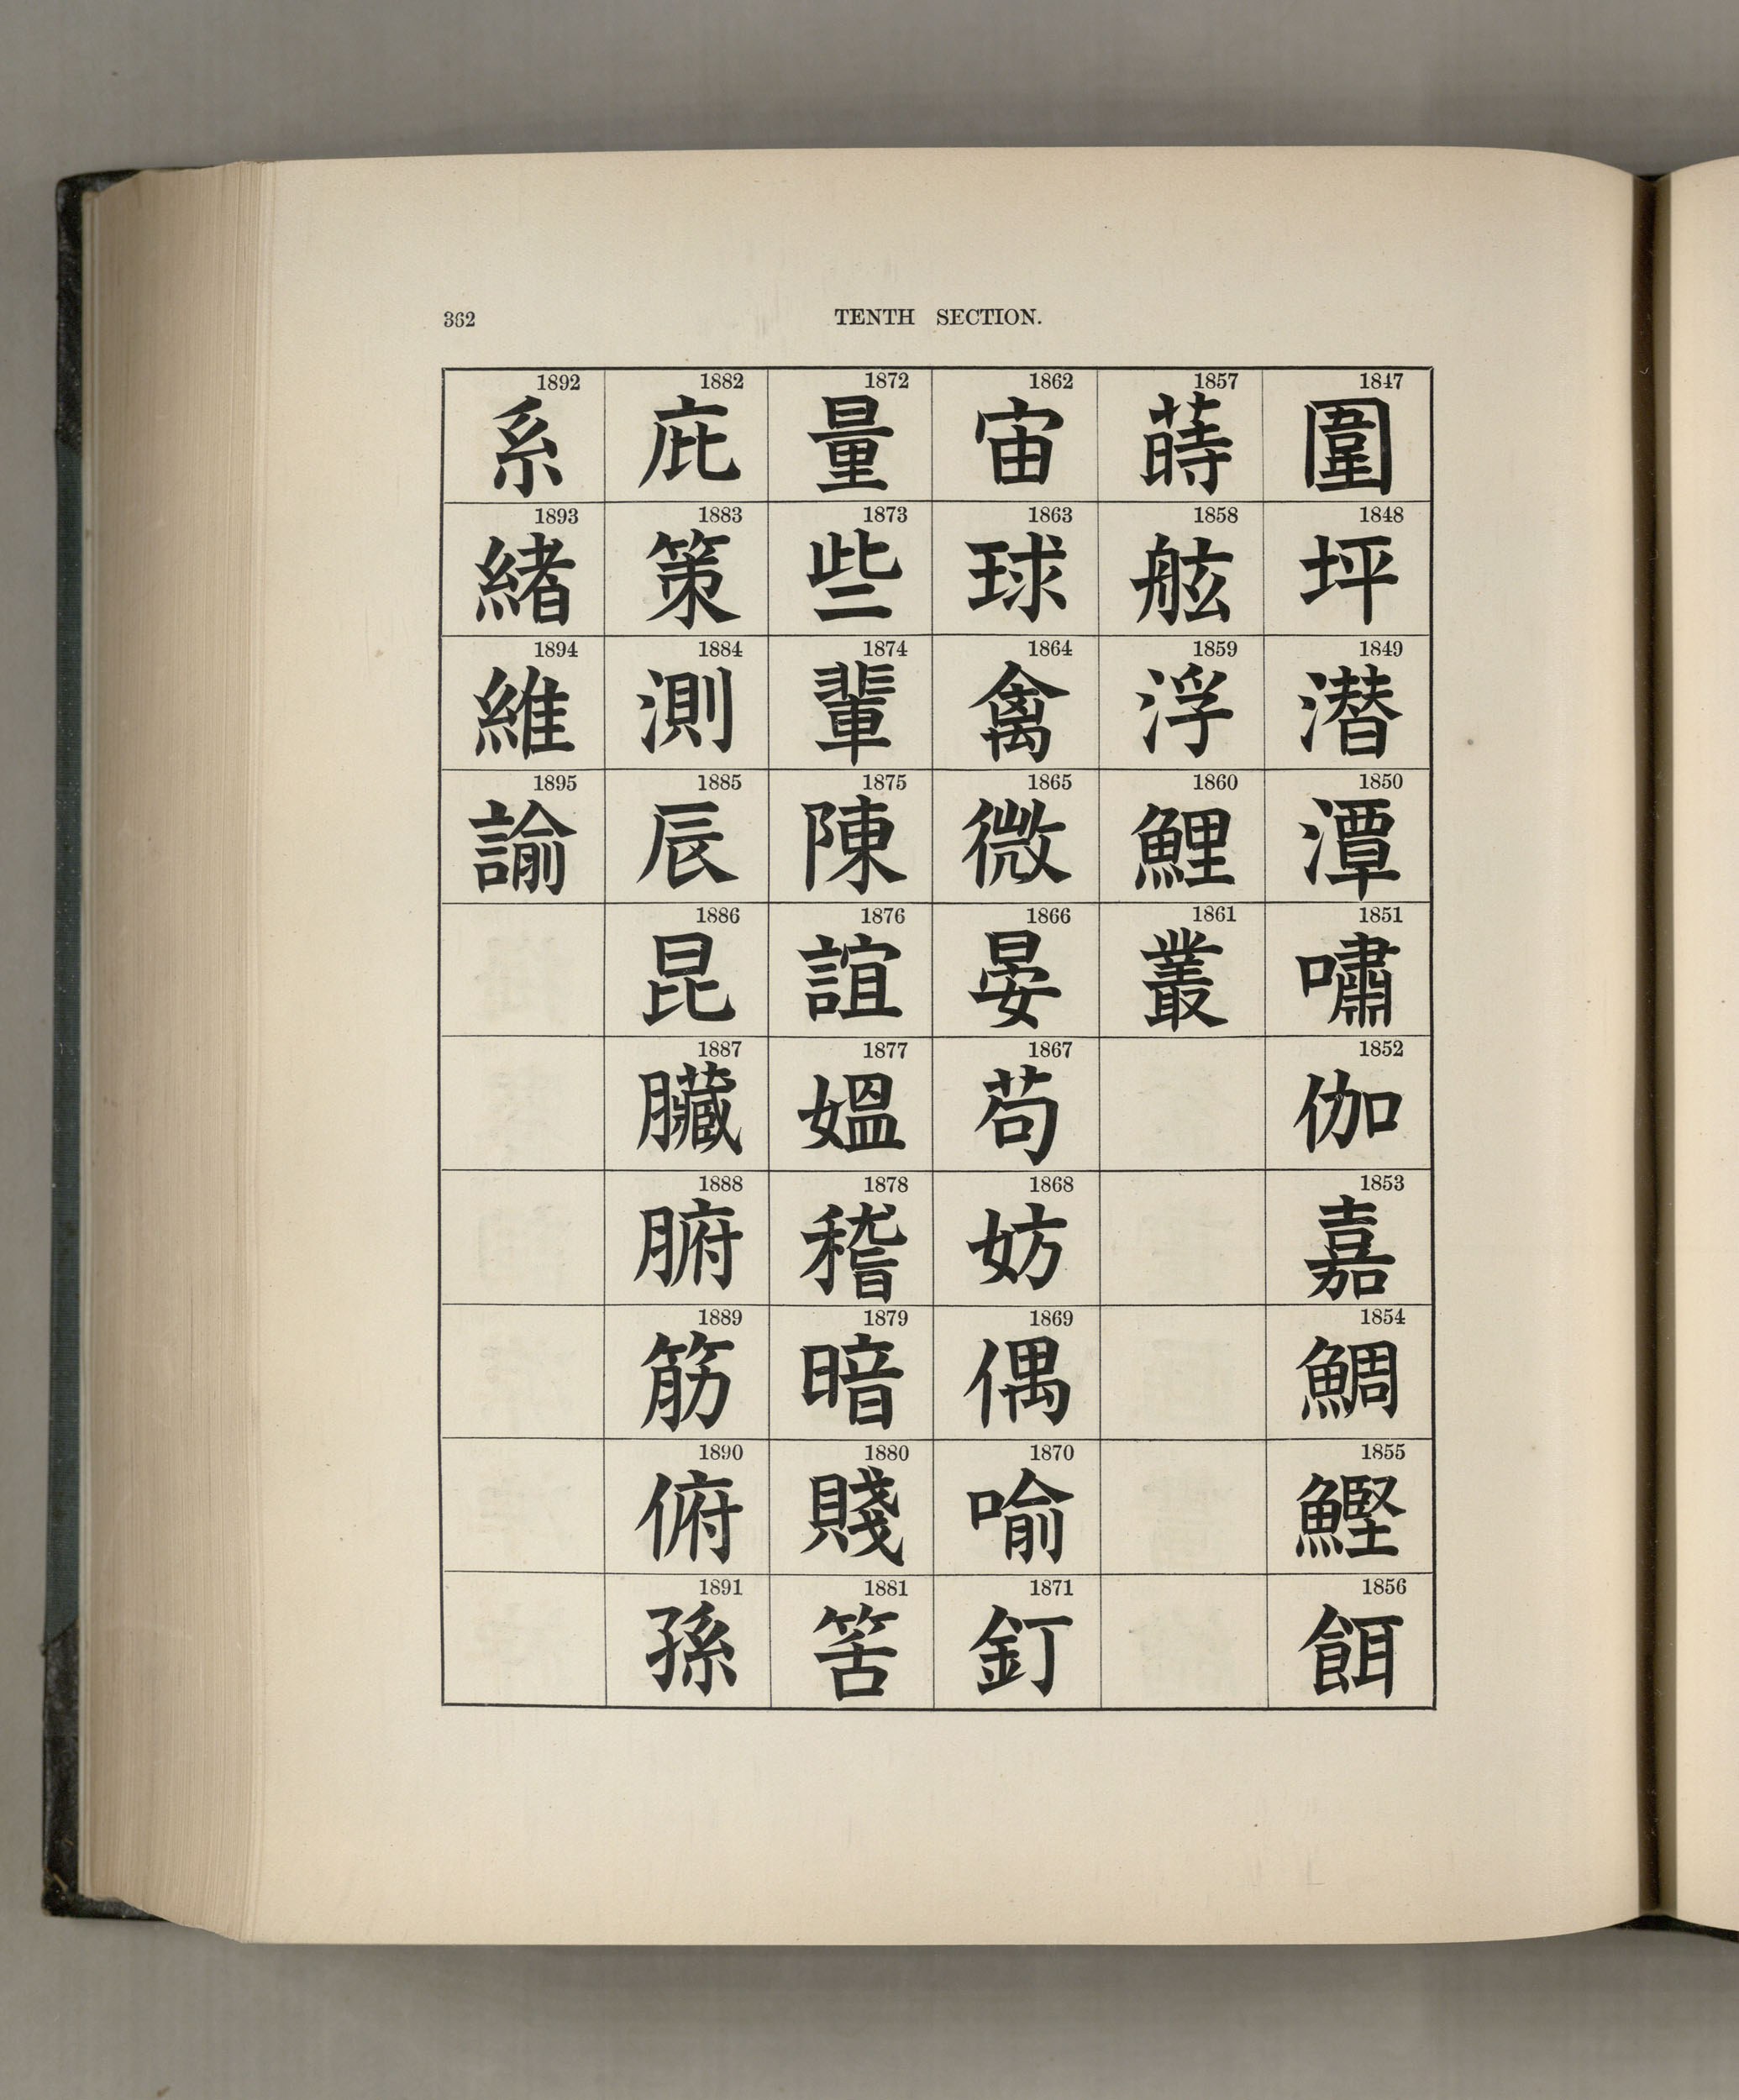 362
TENTH SECTION.
1847
圍
1848
坪
1849
潜
1850
潭
1851
嘯
1852
伽
1853
嘉
1854
鯛
1855
鰹
1856
餌
1857
蒔
1858
舷
1859
浮
1860
鯉
1861
叢
1862
宙
1863
球
1864
禽
1865
微
1866
晏
1867
苟
1868
妨
1869
偶
1870
喻
1871
釘
1872
量
1873
些
1874
輩
1875
陳
1876
誼
1877
媼
1878
稽
1879
暗
1880
賤
1881
筈
1882
庇
1883
策
1884
測
1885
辰
1886
昆
1887
臟
1888
腑
1889
筋
1890
俯
1891
孫
1892
系
1893
緒
1894
維
1895
諭